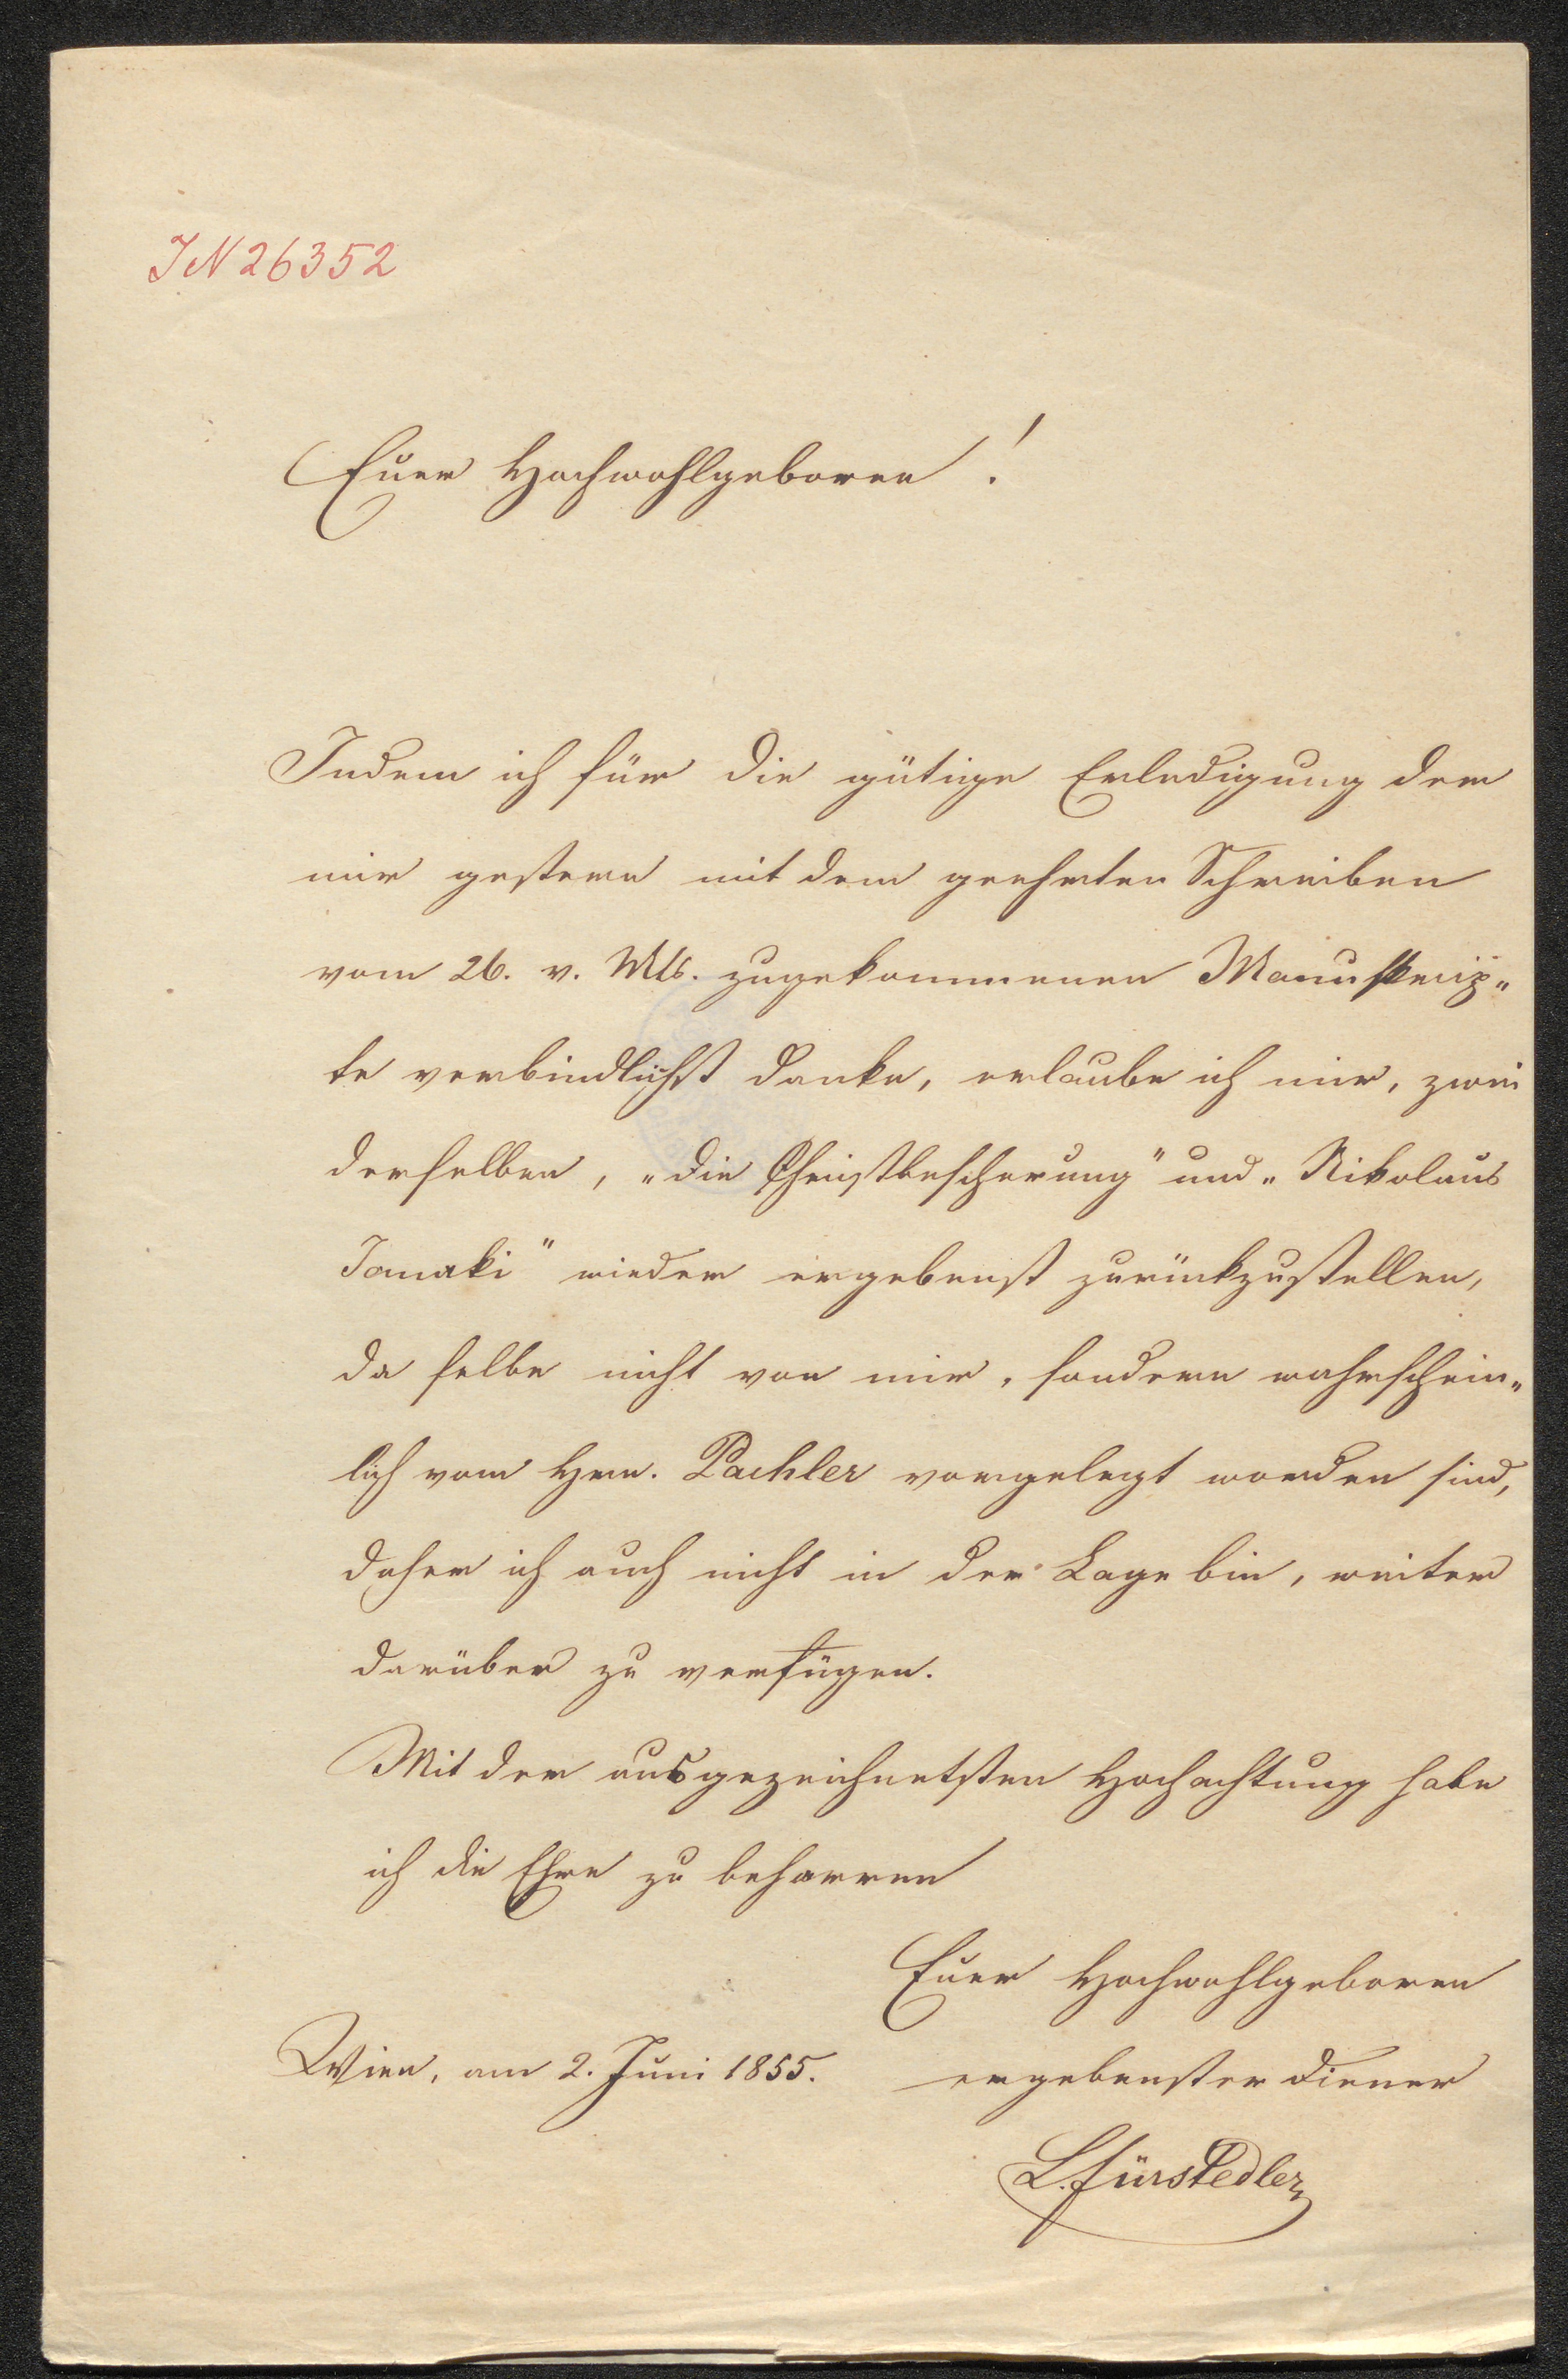 IN 26352
Euer Hochwohlgeboren!
Indem ich für die gütige Erledigung der
mir gestern mit dem geehrten Schreiben
vom 26. v. Mts. zugekommenen Manuskrip„
te verbindlichst danke, erlaube ich mir, zwei
derselben, „die Christbescherung" und „Nikolaus
Janaki" wieder ergebenst zurückzustellen,
da selbe nicht von mir, sondern wahrschein„
lich vom Hrn. Pachler vorgelegt worden sind,
daher ich auch nicht in der Lage bin, weiter
darüber zu verfügen.
Mit der ausgezeichnetsten Hochachtung habe
ich die Ehre zu beharren
Euer Hochwohlgeboren
Wien, am 2. Juni 1855.
ergebenster Diener
L. Fürstedler